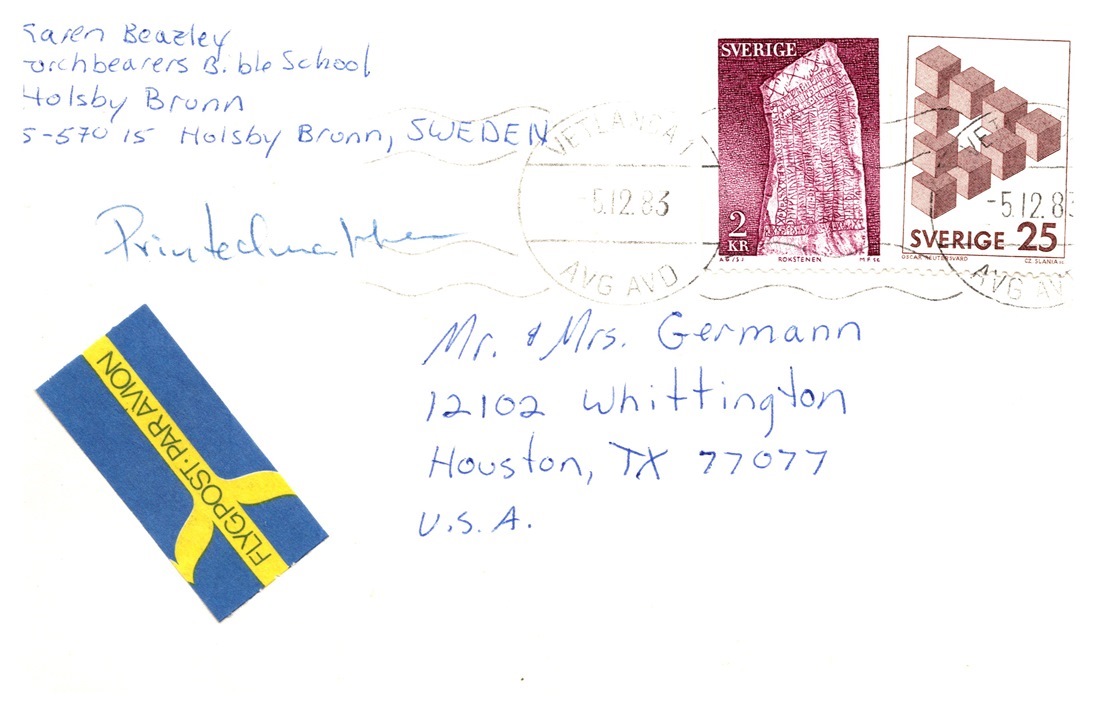 Karen Beazley
Torchbearers Bible School
Holsby Brunn
S-570 15 Holsby Brunn, SWEDEN
Printedmatter
SVERIGE
2
KR
ROKSTENEN
SVERIGE 25
OSCAR REUTERSVÄRD
CZ. SLANIA SC
VETLANDA 1
-5.12.83
AVG AVD
VET
-5.12.83
AVG AV
FLYGPOST·PAR AVION
Mr. & Mrs. Germann
12102 Whittington
Houston, TX 77077
U.S.A.